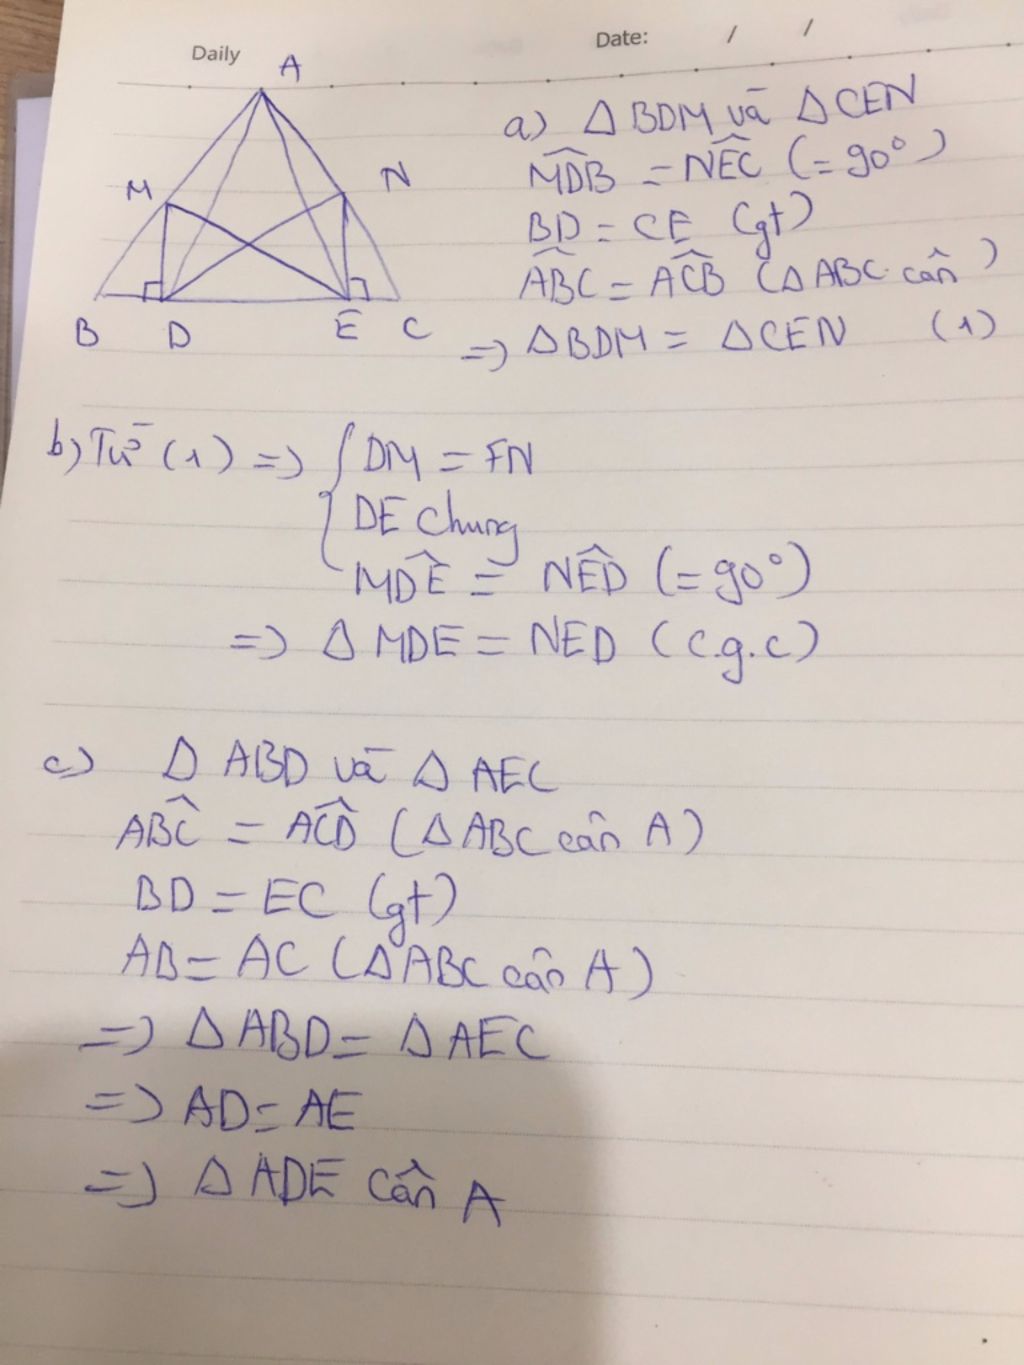 Daily
Date: / /
A
M
N
B D E C
a) Δ BDM và Δ CEN
MDB̂ = NÊC (= 90°)
BD = CE (gt)
AB̂C = AĈB (Δ ABC cân)
=> Δ BDM = Δ CEN (1)
b) Từ (1) => { DM = EN
DE chung
MD̂E = NÊD (= 90°)
=> Δ MDE = NED (c.g.c)
c) Δ ABD và Δ AEC
AB̂C = AĈD (Δ ABC cân A)
BD = EC (gt)
AB = AC (Δ ABC cân A)
=> Δ ABD = Δ AEC
=> AD = AE
=> Δ ADE cân A